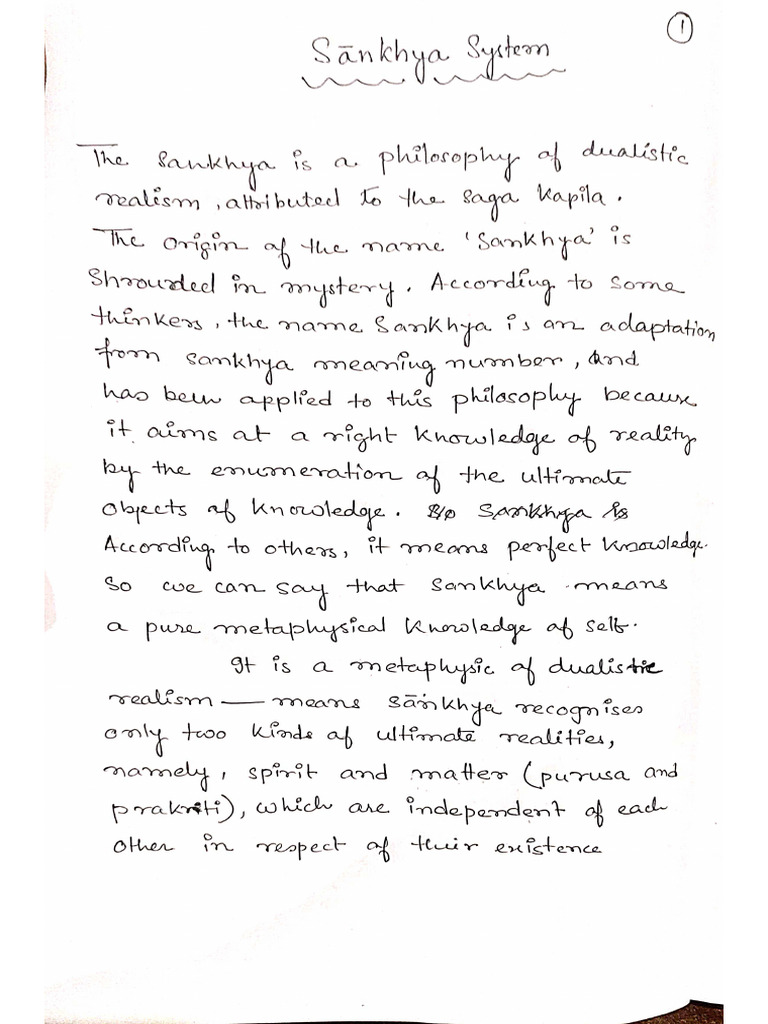 1
Sānkhya System
The Sankhya is a philosophy of dualistic
realism, attributed to the saga Kapila.
The origin of the name 'Sankhya' is
Shrouded in mystery. According to some
thinkers, the name Sankhya is an adaptation
from sankhya meaning number, and
has been applied to this philosophy because
it aims at a right knowledge of reality
by the enumeration of the ultimate
objects of knowledge. Sankhya is
According to others, it means perfect knowledge.
So we can say that Sankhya means
a pure metaphysical knowledge of self.
It is a metaphysic of dualistic
realism — means Sāṅkhya recognises
only two kinds of ultimate realities,
namely, spirit and matter (purusa and
prakriti), which are independent of each
other in respect of their existence